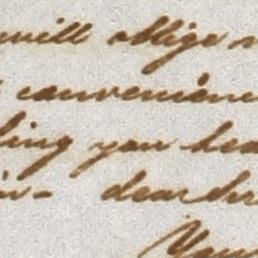 will oblige
convenienc
ling you hea
in- dear Sir
You